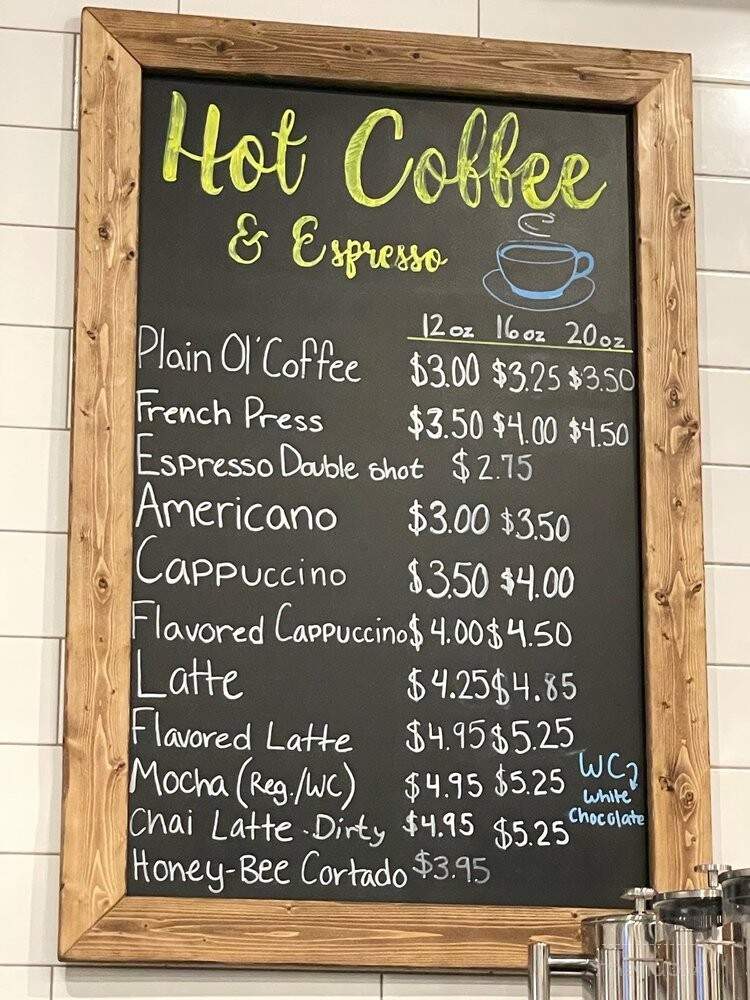 Hot Coffee
& Espresso
12oz 16oz 20oz
Plain Ol' Coffee $3.00 $3.25 $3.50
French Press $3.50 $4.00 $4.50
Espresso Double shot $2.75
Americano $3.00 $3.50
Cappuccino $3.50 $4.00
Flavored Cappuccino $4.00 $4.50
Latte $4.25 $4.85
Flavored Latte $4.95 $5.25
Mocha (Reg./WC) $4.95 $5.25
WC
White
Chocolate
Chai Latte - Dirty $4.95 $5.25
Honey-Bee Cortado $3.95